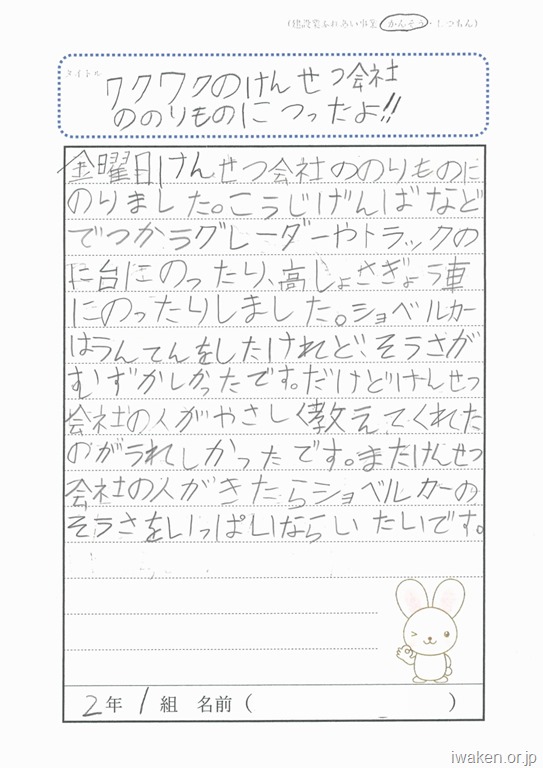 (建設業ふれあい事業 かんそう・しつもん)
タイトル
ワクワクのけんせつ会社
ののりものにつったよ!!
金曜日けんせつ会社ののりものに
のりました。こうじげんばなど
でつかうグレーダーやトラックの
に台にのったり、高しょさぎょう車
にのったりしました。ショベルカー
はうんてんをしたけれど、そうさが
むずかしかったです。だけどけんせつ
会社の人がやさしく教えてくれた
のがうれしかったです。またけんせつ
会社の人がきたらショベルカーの
そうさをいっぱいならいたいです。
2年 1組 名前( )
iwaken.or.jp